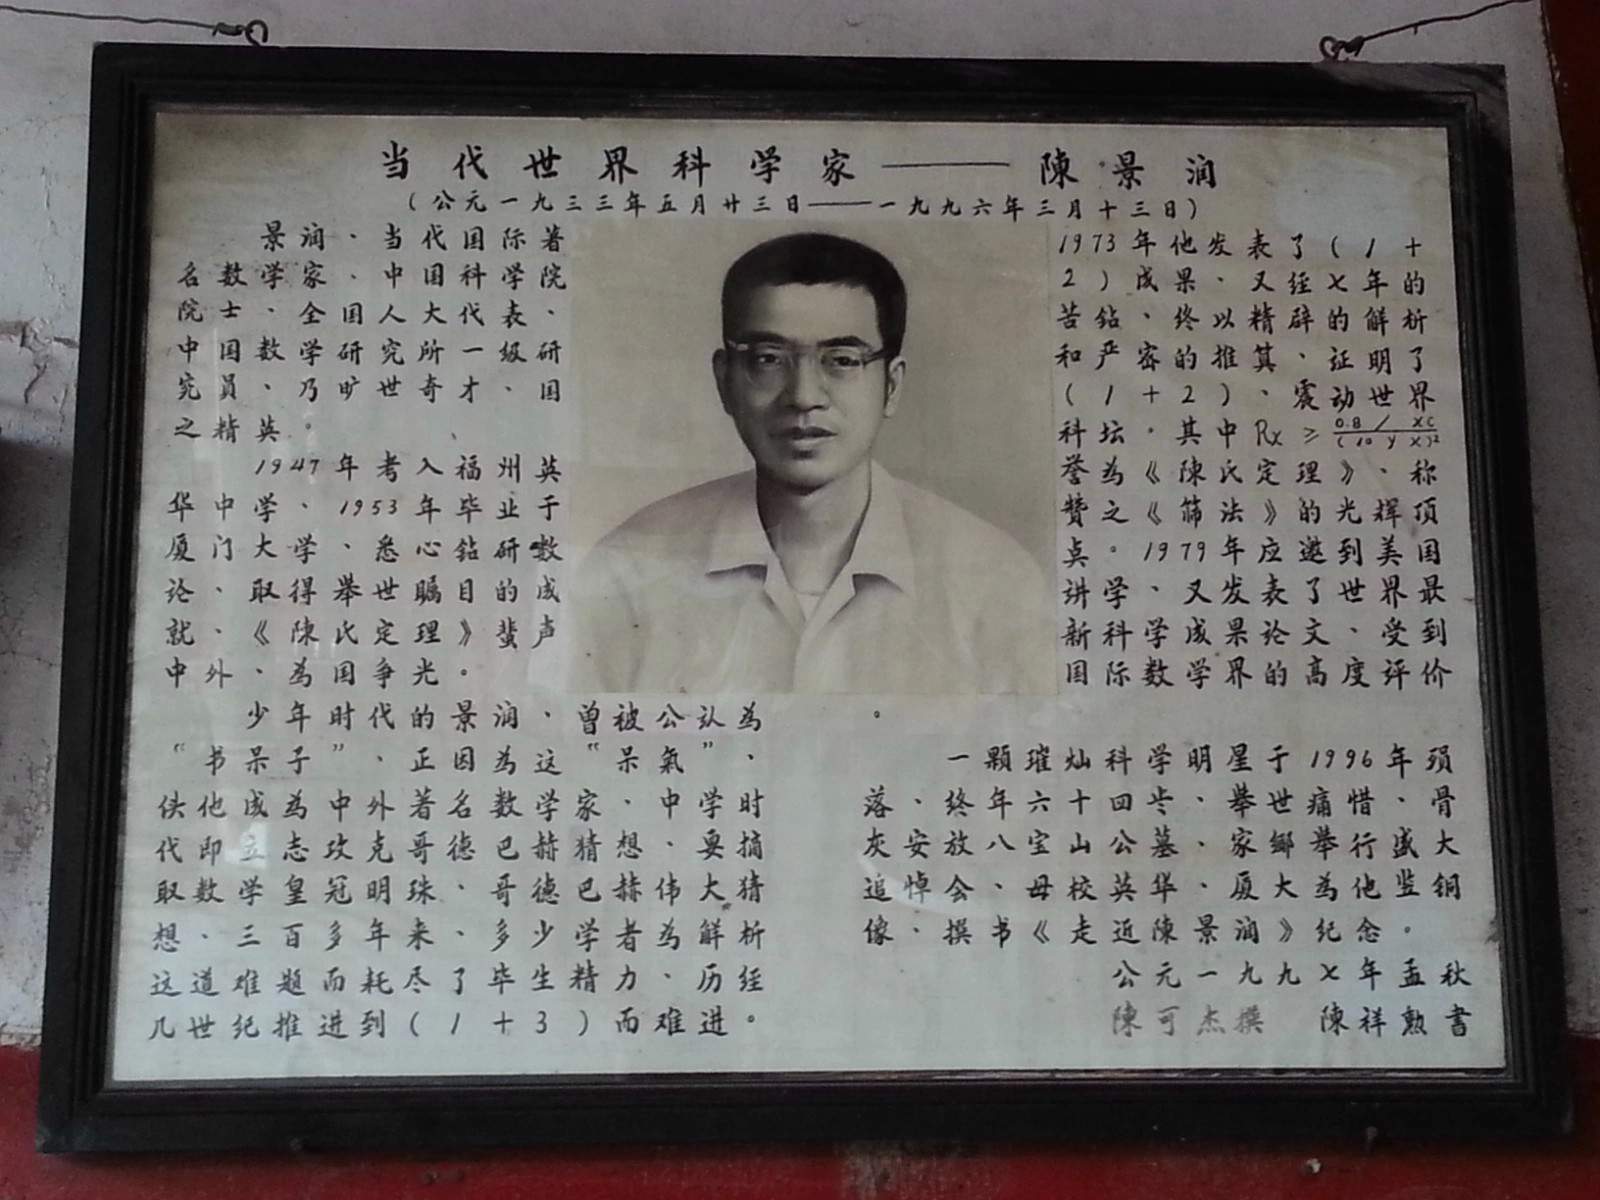 当代世界科学家——陳景润
（公元一九三三年五月廿三日——一九九六年三月十三日）
景润、当代国际著
名数学家、中国科学院
院士、全国人大代表、
中国数学研究所一级研
究员、乃旷世奇才、国
之精英。
1947年考入福州英
华中学、1953年毕业于
厦门大学、悉心鉆研数
论、取得举世瞩目的成
就、《陳氏定理》蜚声
中外、為国争光。
少年时代的景润、曾被公认為
“书呆子”、正因為这“呆氣”、
使他成為中外著名数学家、中学时
代即立志攻克哥德巴赫猜想、要摘
取数学皇冠明珠、哥德巴赫伟大猜
想、三百多年来、多少学者為解析
这道难题而耗尽了毕生精力、历经
几世纪推进到(1+3)而难进。
1973年他发表了(1+
2)成果、又经七年的
苦鉆、终以精辟的解析
和严密的推算、证明了
(1+2)、震动世界
科坛。其中Rx≥
誉為《陳氏定理》、称
赞之《筛法》的光辉顶
点。1979年应邀到美国
讲学、又发表了世界最
新科学成果论文、受到
国际数学界的高度评价
。
一颗璀灿科学明星于1996年殒
落、终年六十四岁、举世痛惜、骨
灰安放八宝山公墓、家鄉举行盛大
追悼会、母校英华、厦大為他竖铜
像、撰书《走近陳景润》纪念。
公元一九九七年孟秋
陳可杰撰 陳祥勲書